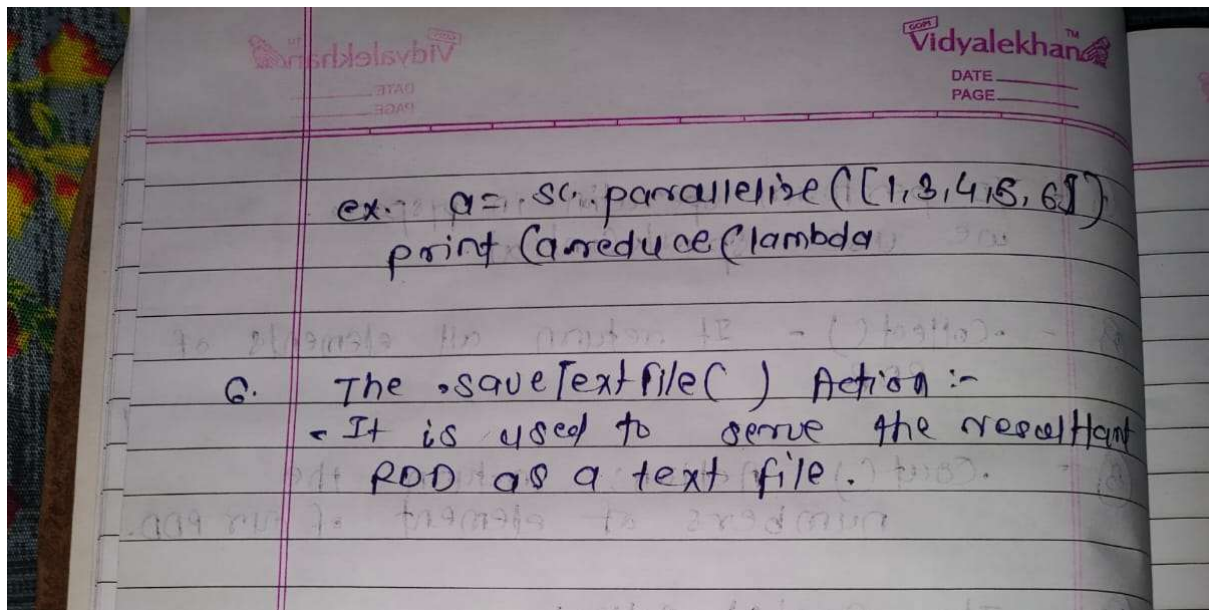 GOPI
Vidyalekhan TM
DATE
PAGE
ex:- a = sc.parallelize([1,3,4,5,6])
print (a.reduce(lambda
6. The .saveTextfile( ) Action :-
- It is used to serve the resultant
RDD as a text file.